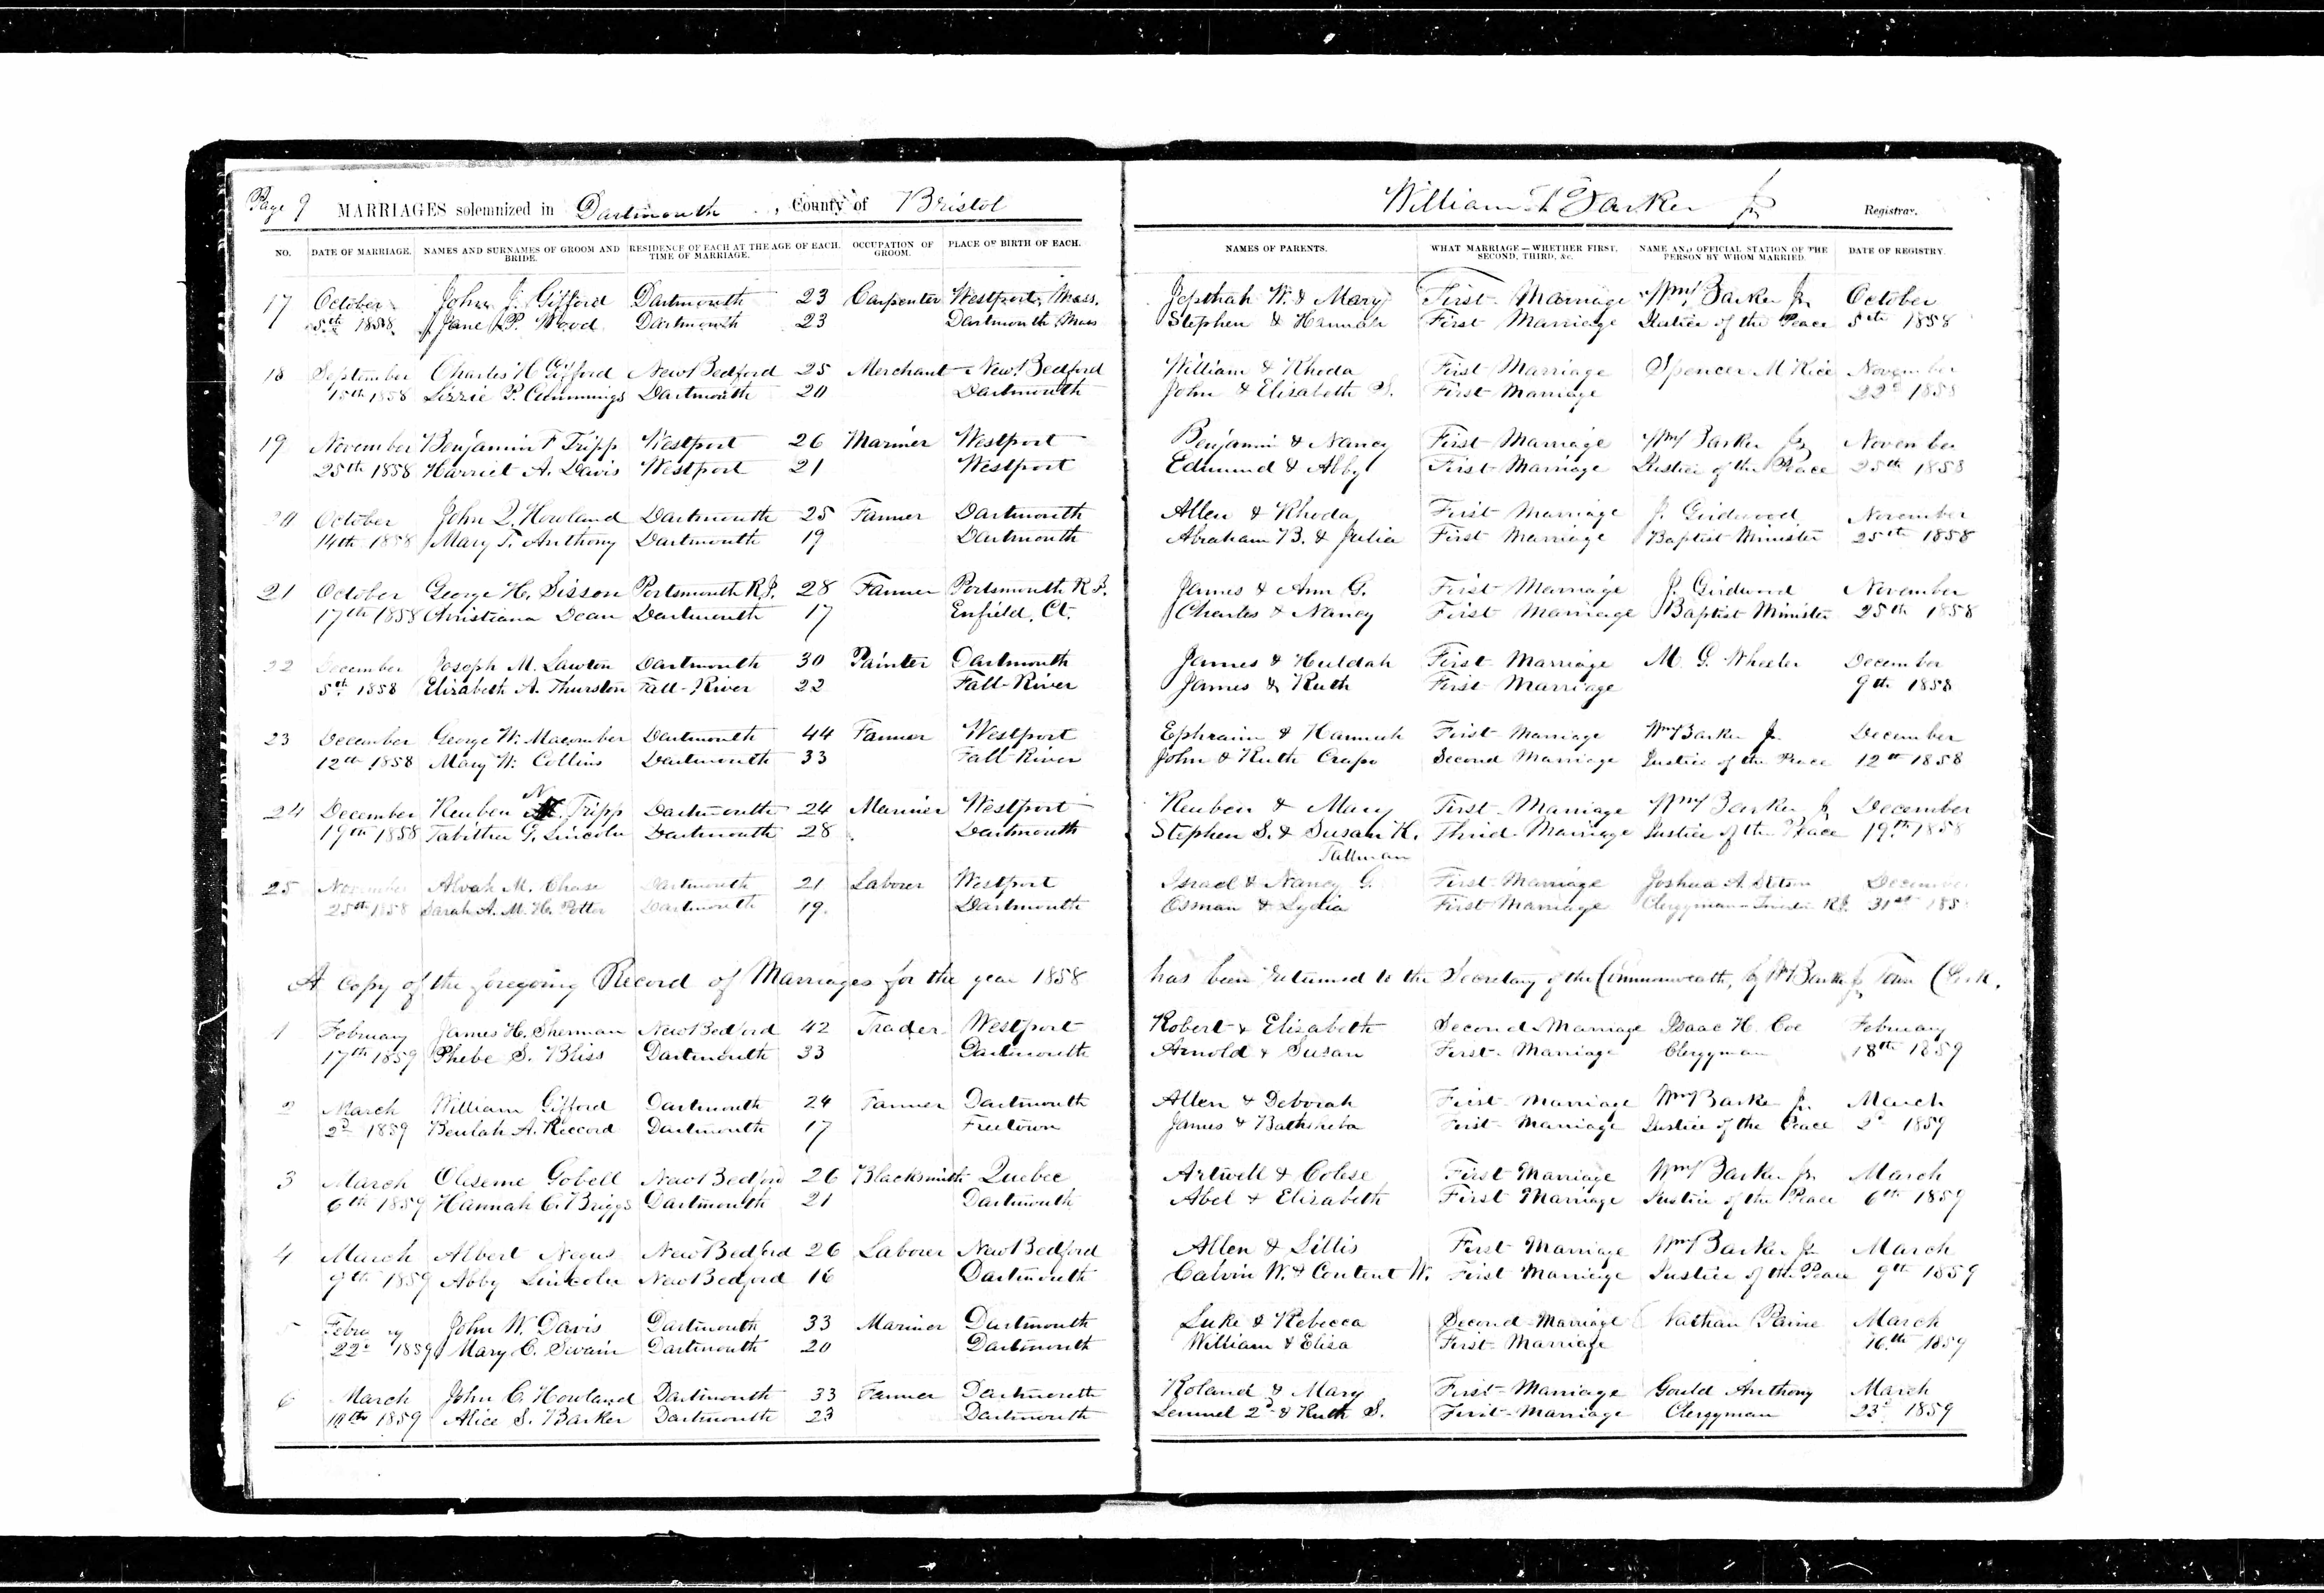 Page 9 MARRIAGES solemnized in Dartmouth, County of Bristol William Barker Jr Registrar.
NO. DATE OF MARRIAGE. NAMES AND SURNAMES OF GROOM AND BRIDE. RESIDENCE OF EACH AT THE TIME OF MARRIAGE. AGE OF EACH. OCCUPATION OF GROOM. PLACE OF BIRTH OF EACH. NAMES OF PARENTS. WHAT MARRIAGE — WHETHER FIRST, SECOND, THIRD, &c. NAME AND OFFICIAL STATION OF THE PERSON BY WHOM MARRIED. DATE OF REGISTRY.
17 October John J. Gifford Dartmouth 23 Carpenter Westport, Mass. Jepthah W. & Mary First Marriage Wm Barker Jr October
5th 1858 Jane P. Wood Dartmouth 23 Dartmouth Mass Stephen & Hannah First Marriage Justice of the Peace 5th 1858
18 September Charles H Gifford New Bedford 25 Merchant New Bedford William & Rhoda First Marriage Spencer M Rice November
15th 1858 Lizzie P. Cummings Dartmouth 20 Dartmouth John & Elisabeth S. First Marriage 22d 1858
19 November Benjamin F Tripp Westport 26 Mariner Westport Benjamin & Nancy First Marriage Wm Barker Jr November
25th 1858 Harriet A. Davis Westport 21 Westport Edmund & Abby First Marriage Justice of the Peace 25th 1858
20 October John Q. Howland Dartmouth 25 Farmer Dartmouth Allen & Rhoda First Marriage J. Girdwood November
14th 1858 Mary T. Anthony Dartmouth 19 Dartmouth Abraham B. & Julia First Marriage Baptist Minister 25th 1858
21 October George H. Sisson Portsmouth R.I. 28 Farmer Portsmouth R.I. James & Ann G. First Marriage J. Girdwood November
17th 1858 Christiana Dean Dartmouth 17 Enfield, Ct. Charles & Nancy First Marriage Baptist Minister 25th 1858
22 December Joseph M. Lawton Dartmouth 30 Painter Dartmouth James & Huldah First Marriage M. G. Wheeler December
5th 1858 Elizabeth A. Thurston Fall-River 22 Fall-River James & Ruth First Marriage 9th 1858
23 December George W. Macomber Dartmouth 44 Farmer Westport Ephraim & Hannah First Marriage Wm Barker Jr December
12th 1858 Mary W. Collins Dartmouth 33 Fall River John & Ruth Crapo Second Marriage Justice of the Peace 12th 1858
24 December Reuben N Tripp Dartmouth 24 Mariner Westport Reuben & Mary First Marriage Wm Barker Jr December
19th 1858 Tabitha G. Lincoln Dartmouth 28 Dartmouth Stephen S. & Susan K. Third Marriage Justice of the Peace 19th 1858
Tallman
25 November Alvah M. Chase Dartmouth 21 Laborer Westport Israel & Nancy G. First Marriage Joshua A. December
25th 1858 Sarah A. M. H. Potter Dartmouth 19. Dartmouth Osman & Lydia First Marriage Clergyman R.I. 31st 185
A copy of the foregoing Record of Marriages for the year 1858 has been returned to the Secretary of the Commonwealth, by Wm Barker Jr Town Clerk.
1 February James H. Sherman New Bedford 42 Trader Westport Robert & Elizabeth Second Marriage Isaac H. Coe February
17th 1859 Phebe S. Bliss Dartmouth 33 Dartmouth Arnold & Susan First Marriage Clergyman 18th 1859
2 March William Gifford Dartmouth 24 Farmer Dartmouth Allen & Deborah First Marriage Wm Barker Jr. March
2d 1859 Beulah A. Reccord Dartmouth 17 Freetown James & Bathsheba First Marriage Justice of the Peace 2d 1859
3 March Oliseme Gobell New Bedford 26 Blacksmith Quebec Artwell & Colese First Marriage Wm Barker Jr. March
6th 1859 Hannah C. Briggs Dartmouth 21 Dartmouth Abel & Elizabeth First Marriage Justice of the Peace 6th 1859
4 March Albert Negus New Bedford 26 Laborer New Bedford Allen & Lillis First Marriage Wm Barker Jr March
9th 1859 Abby Lincoln New Bedford 16 Dartmouth Calvin W. & Content W. First Marriage Justice of the Peace 9th 1859
5 February John W. Davis Dartmouth 33 Mariner Dartmouth Luke & Rebecca Second Marriage Nathan Paine March
22d 1859 Mary C. Swain Dartmouth 20 Dartmouth William & Eliza First Marriage 16th 1859
6 March John C. Howland Dartmouth 33 Farmer Dartmouth Roland & Mary First Marriage Gould Anthony March
1859 Alice S. Barker Dartmouth 23 Dartmouth Lemuel 2d & Ruth S. First Marriage Clergyman 23d 1859